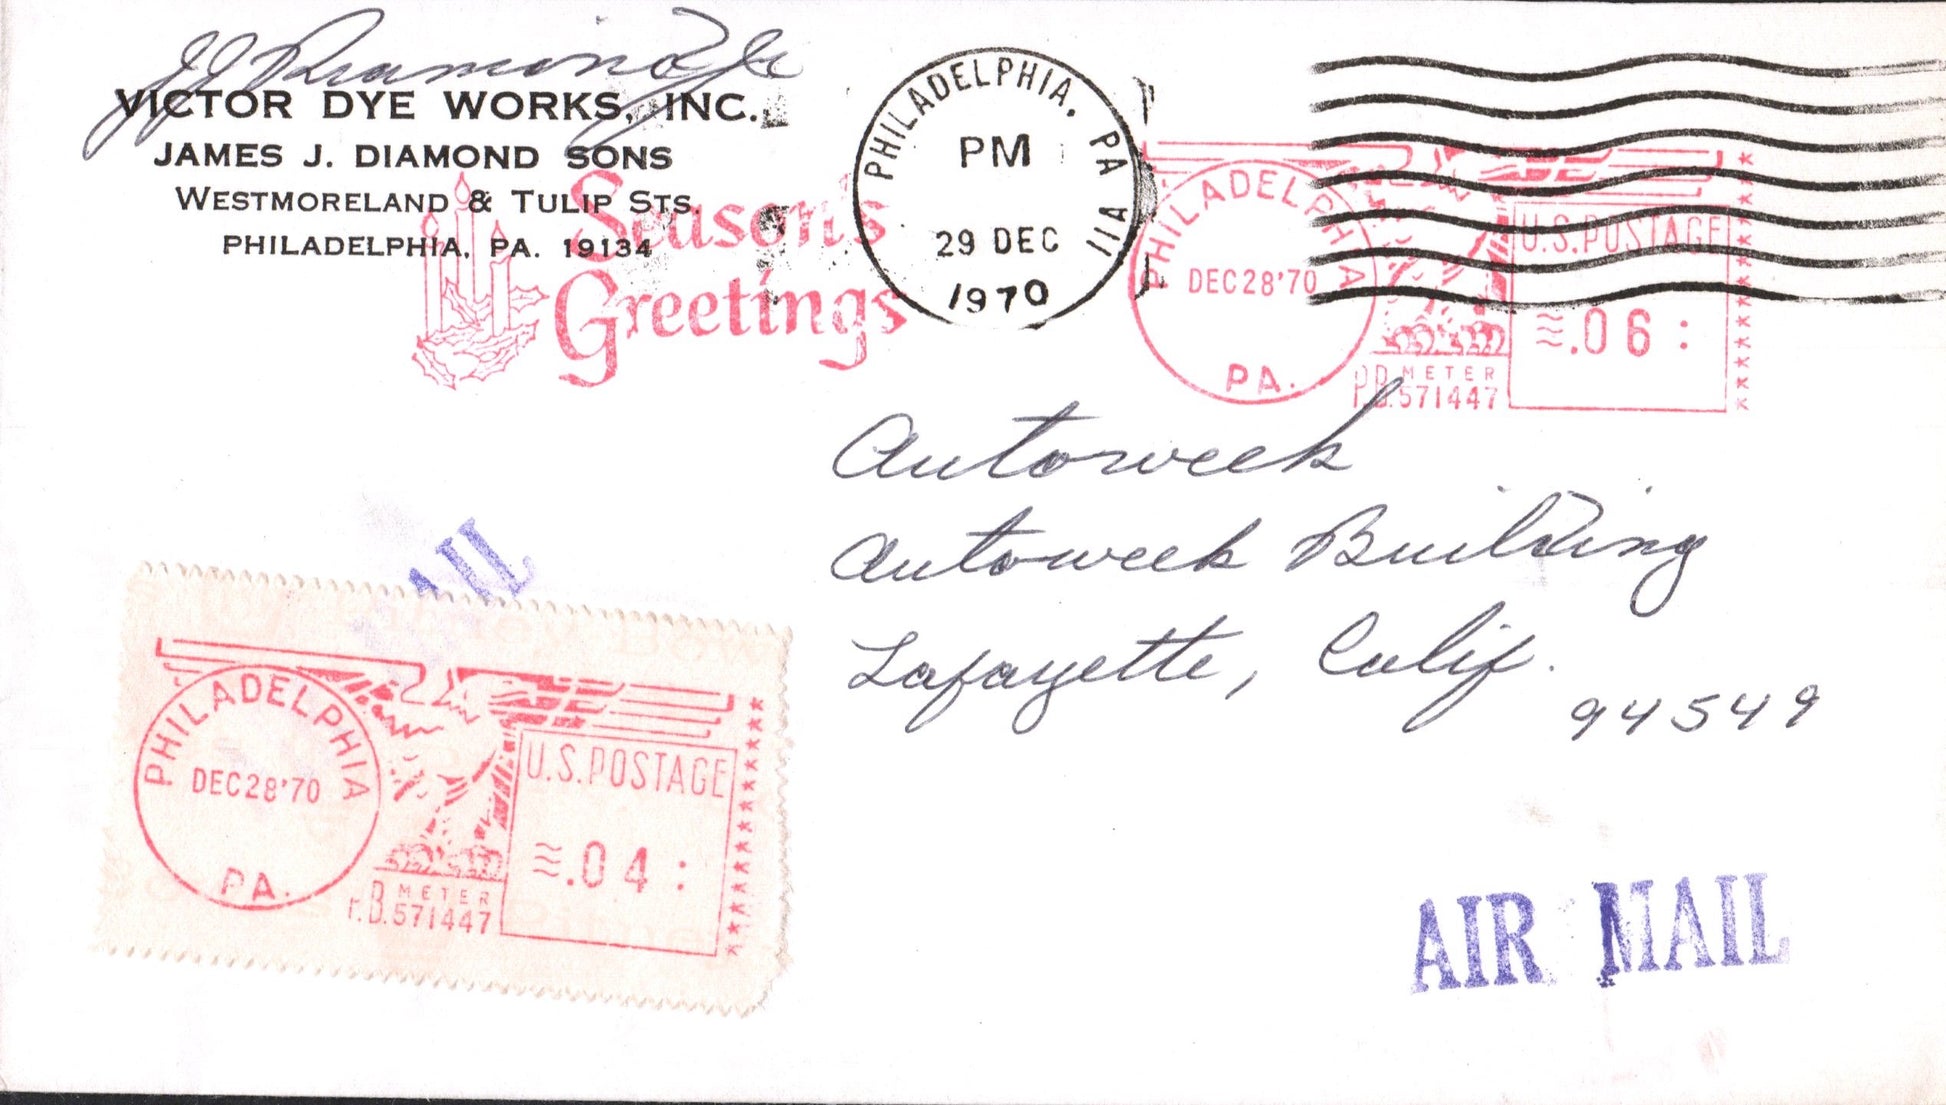 JJ Diamond Jr
VICTOR DYE WORKS, INC.
JAMES J. DIAMOND SONS
WESTMORELAND & TULIP STS.
PHILADELPHIA, PA. 19134
Season's
Greetings
PHILADELPHIA, PA 
PM
29 DEC
1970
PHILADELPHIA
DEC 28 '70
PA.
U.S. POSTAGE
.06
P.B. METER
571447
Autoweek
Autoweek Building
Lafayette, Calif.
94549
AIL
PHILADELPHIA
DEC 28 '70
PA.
U.S. POSTAGE
.04
P.B. METER
571447
AIR MAIL